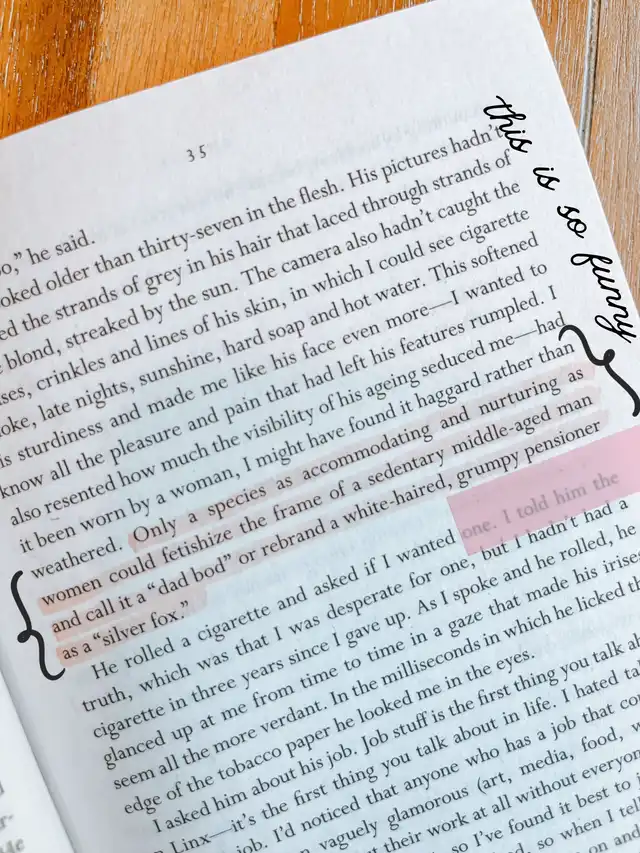 35
this is so funny
o," he said.
oked older than thirty-seven in the flesh. His pictures hadn't
ed the strands of grey in his hair that laced through strands of
blond, streaked by the sun. The camera also hadn't caught the
ses, crinkles and lines of his skin, in which I could see cigarette
oke, late nights, sunshine, hard soap and hot water. This softened
is sturdiness and made me like his face even more—I wanted to
know all the pleasure and pain that had left his features rumpled. I
also resented how much the visibility of his ageing seduced me—had
it been worn by a woman, I might have found it haggard rather than
weathered. Only a species as accommodating and nurturing as
women could fetishize the frame of a sedentary middle-aged man
and call it a "dad bod" or rebrand a white-haired, grumpy pensioner
as a "silver fox."
He rolled a cigarette and asked if I wanted one. I told him the
truth, which was that I was desperate for one, but I hadn't had a
cigarette in three years since I gave up. As I spoke and he rolled, he
glanced up at me from time to time in a gaze that made his irises
seem all the more verdant. In the milliseconds in which he licked t
edge of the tobacco paper he looked me in the eyes.
I asked him about his job. Job stuff is the first thing you talk a
Linx—it's the first thing you talk about in life. I hated ta
job. I'd noticed that anyone who has a job that co
vaguely glamorous (art, media, food,
their work at all without everyon
so I've found it best to
so when I tel
on and